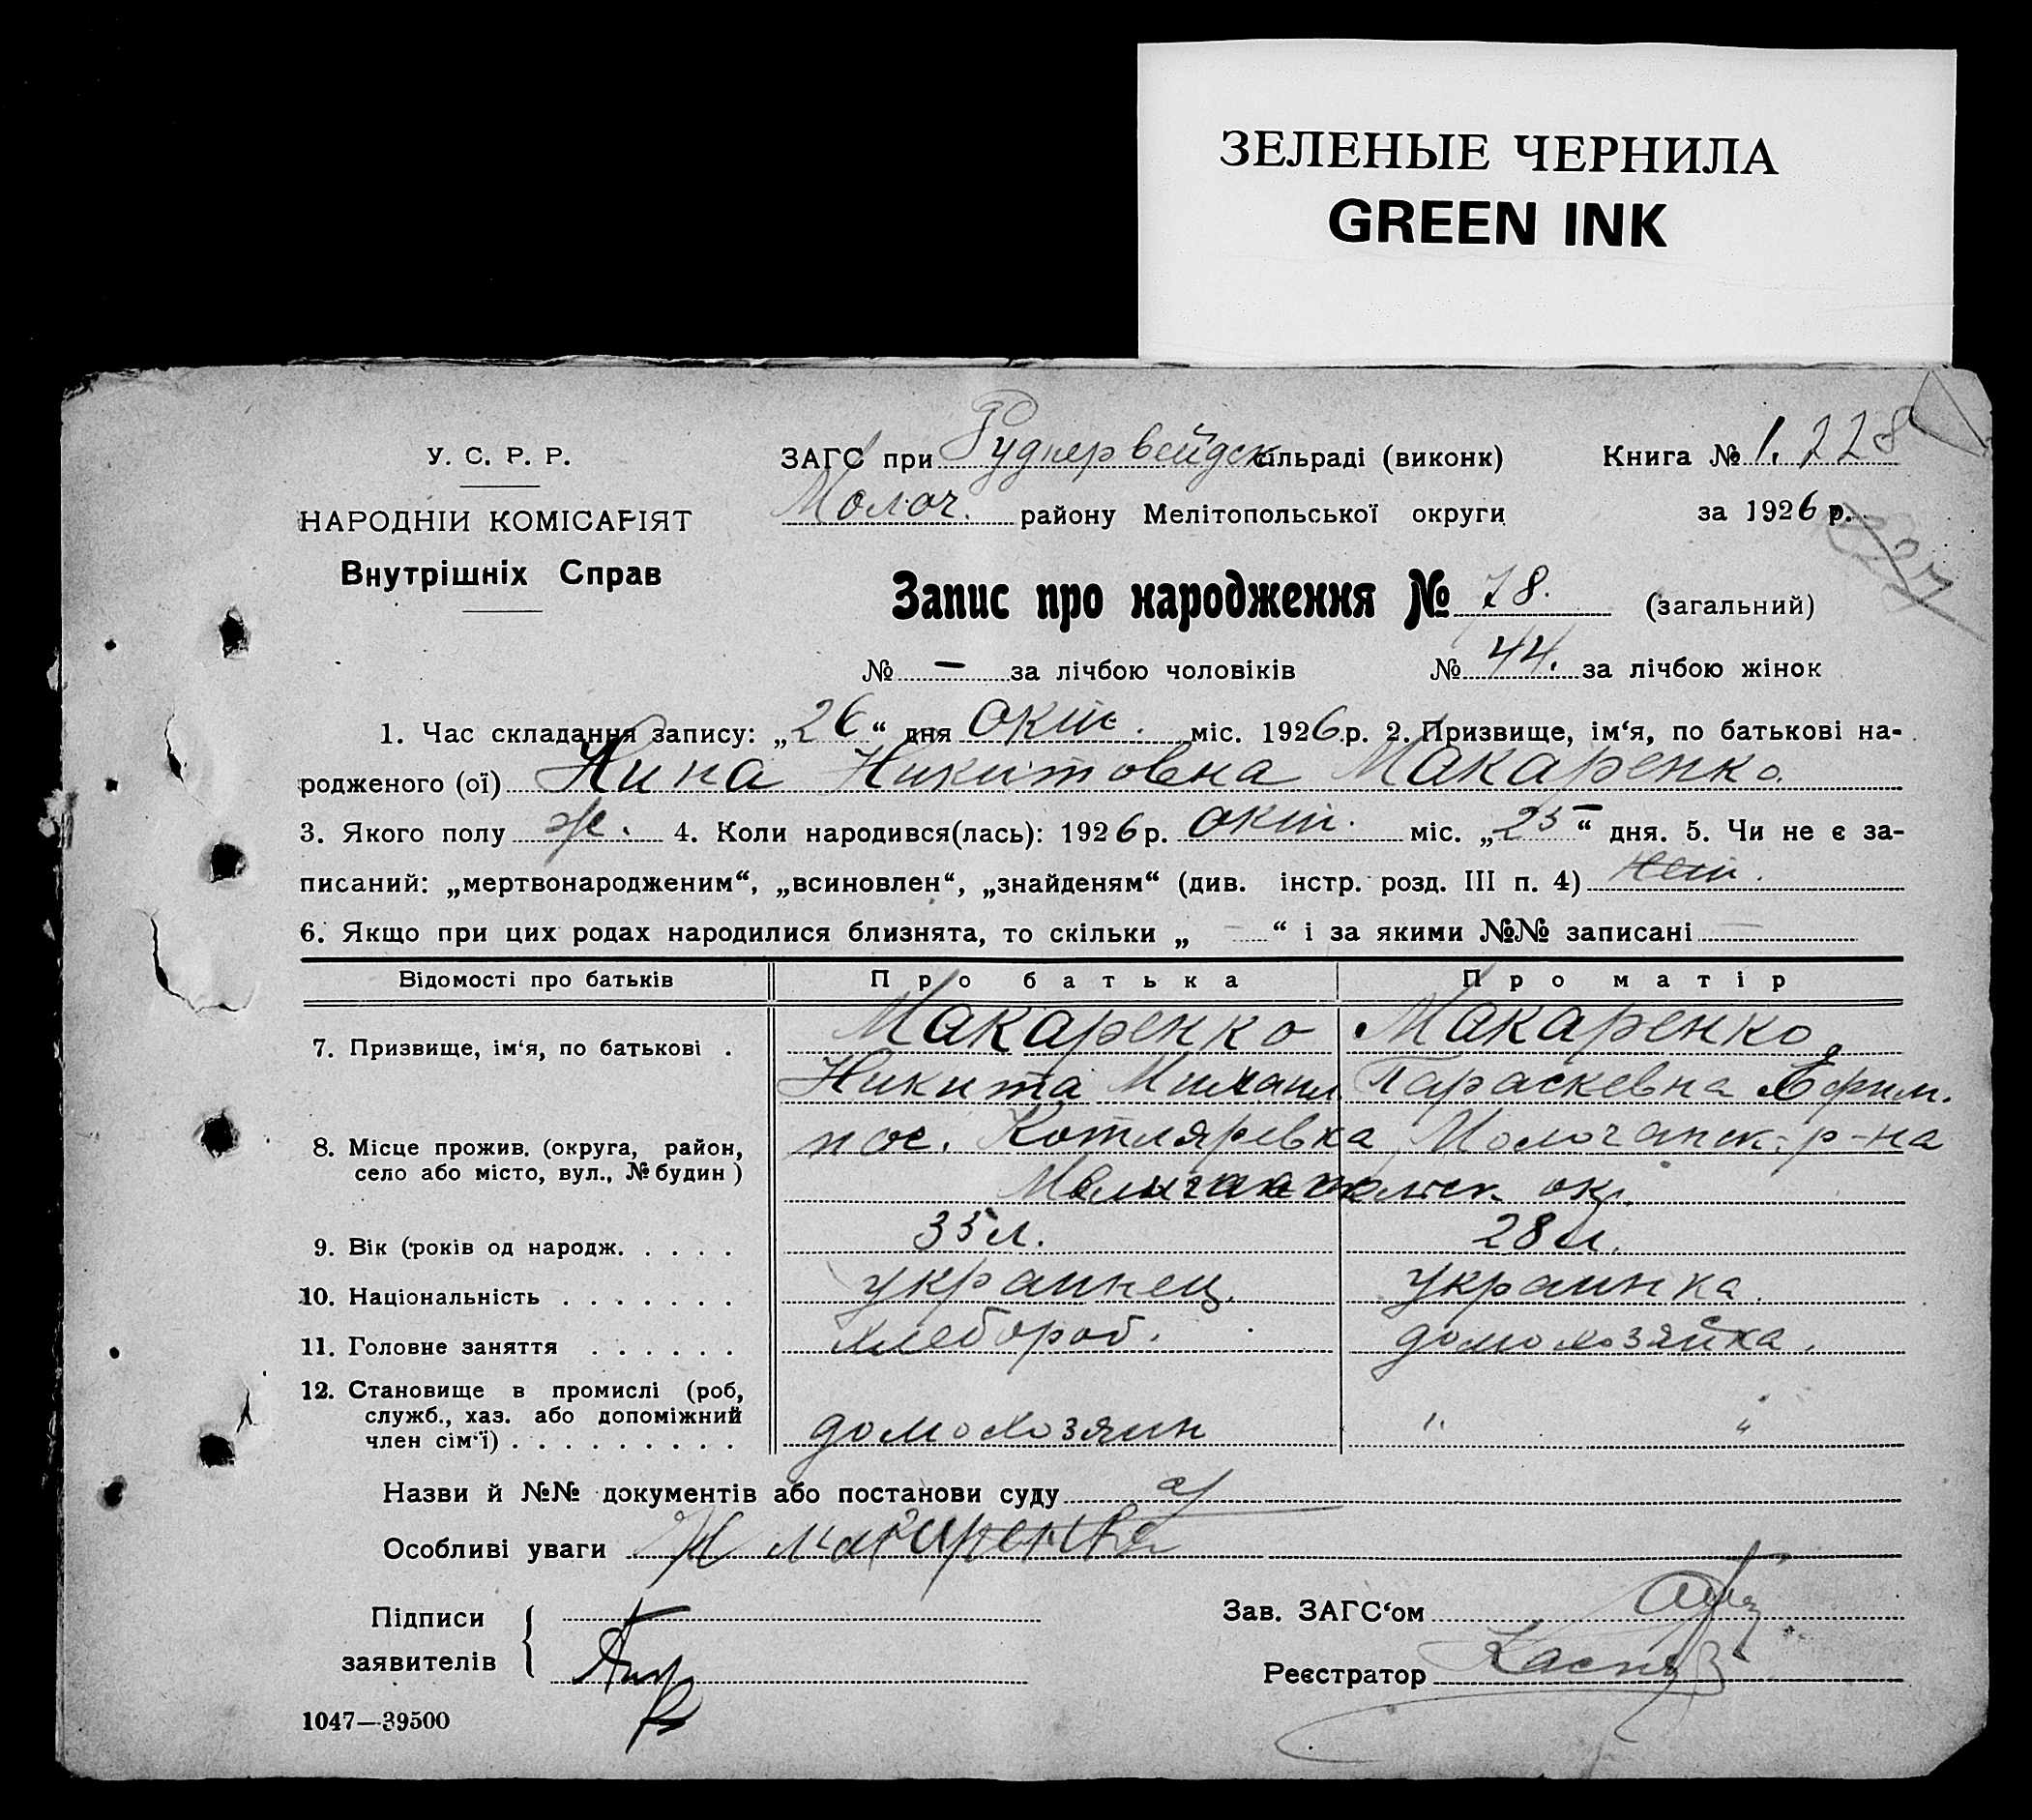 ЗЕЛЕНЫЕ ЧЕРНИЛА
GREEN INK
У. С. Р. Р.
НАРОДНІЙ КОМІСАРІЯТ
Внутрішніх Справ
ЗАГС при Руднервейдск сільраді (виконк)
Молоч. району Мелітопольської округи
Книга № 1. 228
за 1926 р.
227
Запис про народження № 78. (загальний)
№ — за лічбою чоловіків № 44. за лічбою жінок
1. Час складання запису: „26“ дня окт. міс. 1926 р. 2. Призвище, ім‘я, по батькові на-
родженого (ої) Нина Никитовна Макаренко.
3. Якого полу ж. 4. Коли народився(лась): 1926 р. окт. міс. „25“ дня. 5. Чи не є за-
писаний: „мертвонародженим“, „всиновлен“, „знайденям“ (див. інстр. розд. III п. 4) нет.
6. Якщо при цих родах народилися близнята, то скільки „ — “ і за якими №№ записані —
Відомості про батьків Про батька Про матір
7. Призвище, ім‘я, по батькові . Макаренко Макаренко
Никита Михаил Параскевна Ефим.
8. Місце прожив. (округа, район, село або місто, вул., № будин) пос. Котляревка Молочанск. р-на
окр.
9. Вік (років од народж. . . . . 35 л. 28 л.
10. Національність . . . . . . . украинец. украинка.
11. Головне заняття . . . . . . хлебороб. домохозяйка.
12. Становище в промислі (роб,
служб., хаз. або допоміжний
член сім‘ї) . . . . . . . . . домохозяин " "
Назви й №№ документів або постанови суду
Особливі уваги Н Макаренко
Підписи
заявителів
Зав. ЗАГС‘ом
Реєстратор
1047—39500